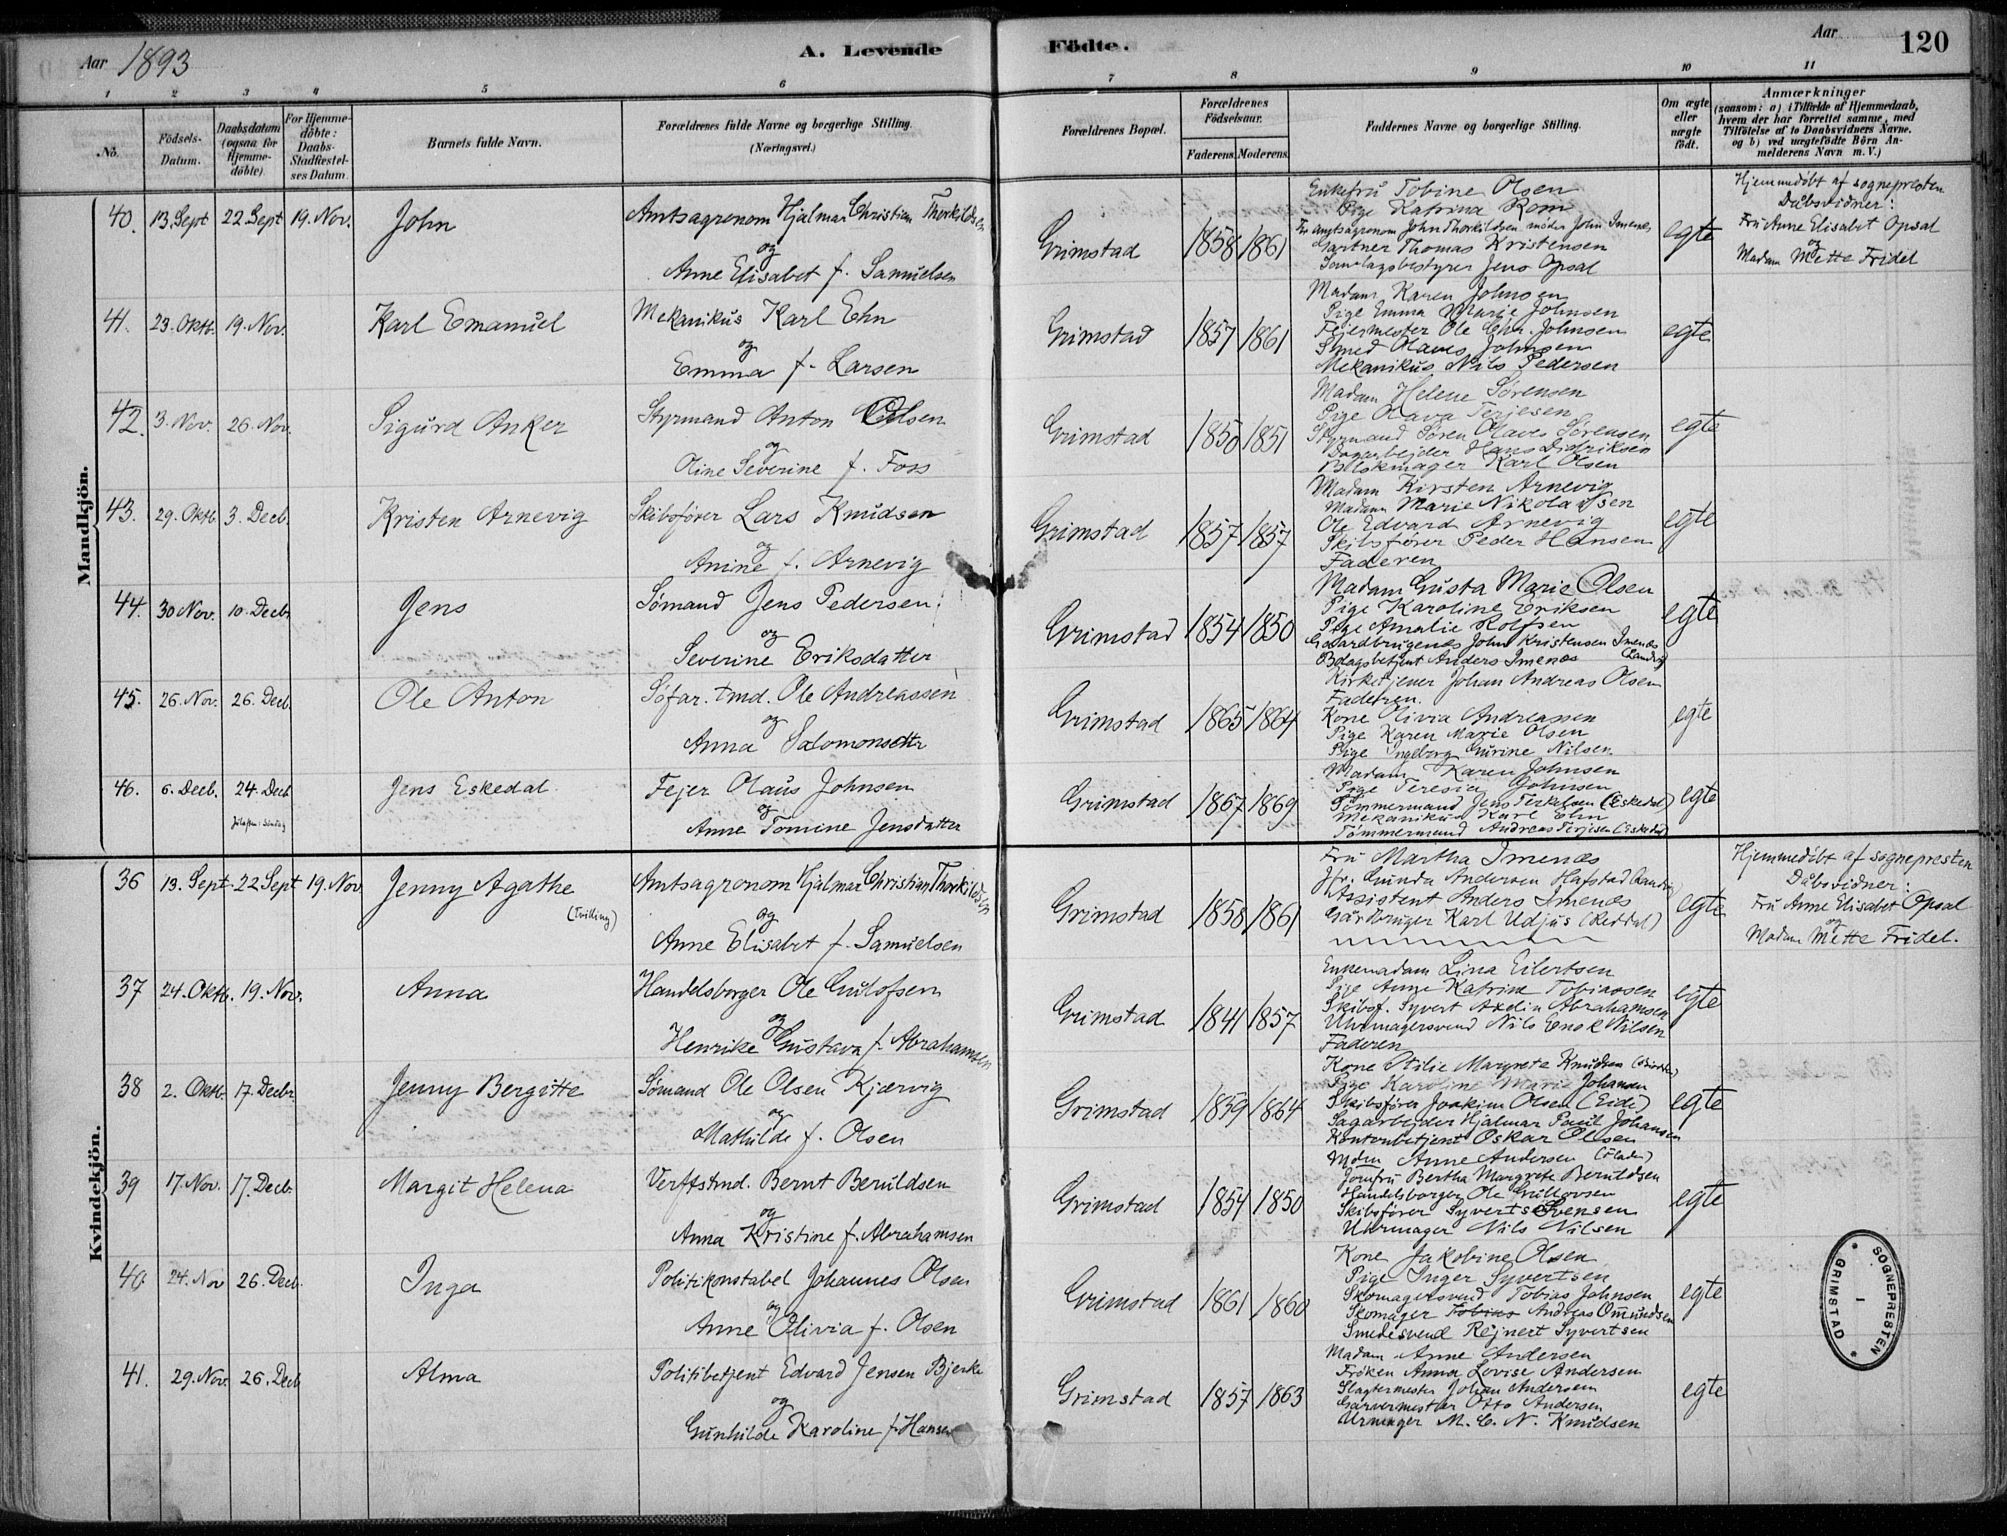 Aar 1893
A. Levende
Fødte.
Aar
120
1 2 3 4 5 6 7 8 9 10 11
No.
Fødsels-Datum.
Daabsdatum (ogsaa for Hjemme-døbte)
For Hjemme-døbte: Daabs-Stadfæstel-ses Datum.
Barnets fulde Navn.
Forældrenes fulde Navne og borgerlige Stilling. (Næringsvei.)
Forældrenes Bopæl.
Forældrenes Fødselsaar.
Faderens. Moderens.
Faddernes Navne og borgerlige Stilling.
Om ægte eller uægte født.
Anmærkninger
(saasom: a) i Tilfælde af Hjemmedaab, hvem der har forrettet samme, med Tilføielse af to Daabsvidners Navne. og b) ved uægtefødte Børn An-melderens Navn m. V.)
Mandkjön.
40. 13. Sept 22 Sept 19. Nov. John
Amtsagronom Hjalmar Christian Thorkildsen
og
Anne Elisabet f. Samuelsen
Grimstad 1858 1861
Enkefru Tobine Olsen
Pige Katrina Rom
Fv. amtsagronom John Thorkildsen møder John Imenes
Gartner Thomas Kristensen
Samlagsbestyrer Jens Opsal
egte
Hjemmedøbt af sognepresten
Dåbsvidner:
Fru Anne Elisabet Opsal
og
Madam Mette Fridel
41. 23. Oktb. 19. Nov. Karl Emanuel
Mekanikus Karl Ehn
og
Emma f. Larsen
Grimstad 1857 1861
Madam Karen Johnsen
Pige Emma Marie Johnsen
Feiermester Ole Chr. Johnsen
Smed Olaves Johnsen
Mekanikus Nils Pedersen
egte
42. 3. Nov. 26. Nov. Sigurd Anker
Styrmand Anton Olsen
og
Oline Severine f. Foss
Grimstad 1850 1851
Madam Helene Sørensen
Pige Olava Terjesen
Styrmand Søren Olaves Sørensen
Dagarbejder Hans Didriksen
Blokmager Karl Olsen
egte
43. 29. Oktb 3. Decb. Kristen Arnevig
Skibsfører Lars Knudsen
og
Anine f. Arnevig
Grimstad 1857 1857
Madam Kirsten Arnevig
Madam Marie Nikolaisen
Ole Edvard Arnevig
Skibsfører Peder Hansen
Faderen
egte
44. 30 Nov. 10. Decb. Jens
Sømand Jens Pedersen
og
Severine Eriksdatter
Grimstad 1854 1850
Madam Gusta Marie Olsen
Pige Karoline Eriksen
Pige Amalie Rolfsen
Gaardbrugende John Kristensen Imenes (Landvig)
Bolagsbetjent Anders Imenæs
egte
45. 26. Nov. 26. Decb. Ole Anton
Søfar. tmd. Ole Andreassen
og
Anna Salomonsdttr
Grimstad 1865 1864
Kirketjener Johan Andreas Olsen
Faderen.
Kone Olivia Andreassen
Pige Karen Marie Olsen
Pige Ingeborg Gurine Nilsen
egte
46. 6. Decb. 24. Decb Jens Eskedal
Fejer Olaus Johnsen
og
Anne Tomine Jensdatter
Grimstad 1867 1869
Madam Karen Johnsen
Pige Teresia Johnsen
Tømmermand Jens Terkelsen (Eskedal)
Mekanikus Karl Ehn
Tømmermand Andreas Terjesen (Eskedal)
egte
Kvindekjön.
36 13. Sept. 22 Sept 19. Nov Jenny Agathe
(Tvilling)
Amtsagronom Hjalmar Christian Thorkildsen
og
Anne Elisabet f. Samuelsen
Grimstad 1858 1861
Fru Martha Imenæs
Jfr. Gunda Andersen Hafstad (Landvig)
Assistent Anders Imenæs
Gårdbruger Karl Udjus (Reddal)
egte
Hjemmedøbt af sognepresten
Dåbsvidner:
Fru Anne Elisabet Opsal
og
Madam Mette Fridel.
37 24. Oktb. 19. Nov. Anna
Handelsborger Ole Gulofsen
og
Henrike Gustava f. Abrahamsen
Grimstad 1841 1857
Enkemadam Lina Eilertsen
Pige Anne Katrine Tobiassen
Skibsf. Syvert Axdin Abrahamsen
Uhrmagersvend Nils Enok Nilsen
Faderen
egte
38 2. Oktb. 17. Decbr. Jenny Bergitte
Sømand Ole Olsen Kjærvig
og
Mathilde f. Olsen
Grimstad 1859 1864
Kone Otilie Margrete Knudsen
Pige Karoline Marie Johansen
Skibsfører Joakim Olsen (Eide)
Sagarbejder Hjalmar Paul Johansen
Kontorbetjent Oskar Olsen
egte
39 17. Nov. 17. Decb. Margit Helena
Verftstmd. Bernt Beruldsen
og
Anna Kristine f. Abrahamsen
Grimstad 1854 1850
Mdm Anne Andersen
Jomfru Bertha Margrete Beruldsen
Handelsborger Ole Gullovsen
Skibsfører Syvert Svensen
Uhrmager Nils Nilsen
egte
40 24. Nov 26. Decb. Inga
Politikonstabel Johannes Olsen
og
Anne Olivia f. Olsen
Grimstad 1861 1860
Kone Jakobine Olsen
Pige Inger Syvertsen
Skomagersvend Tobias Johnsen
Skomager Tobias Andreas Omundsen
Smedesvend Rejnert Syvertsen
egte
41. 29. Nov. 26. Decb Alma
Politibetjent Edvard Jensen Bjerke
og
Gunhilde Karoline f. Hansen
Grimstad 1857 1863
Madam Anne Andersen
Frøken Anna Lovise Andersen
Slagtermester Johan Andersen
Garvermester Otto Andersen
Urmager M. C. N. Knudsen
egte
SOGNEPRESTEN
I
GRIMSTAD